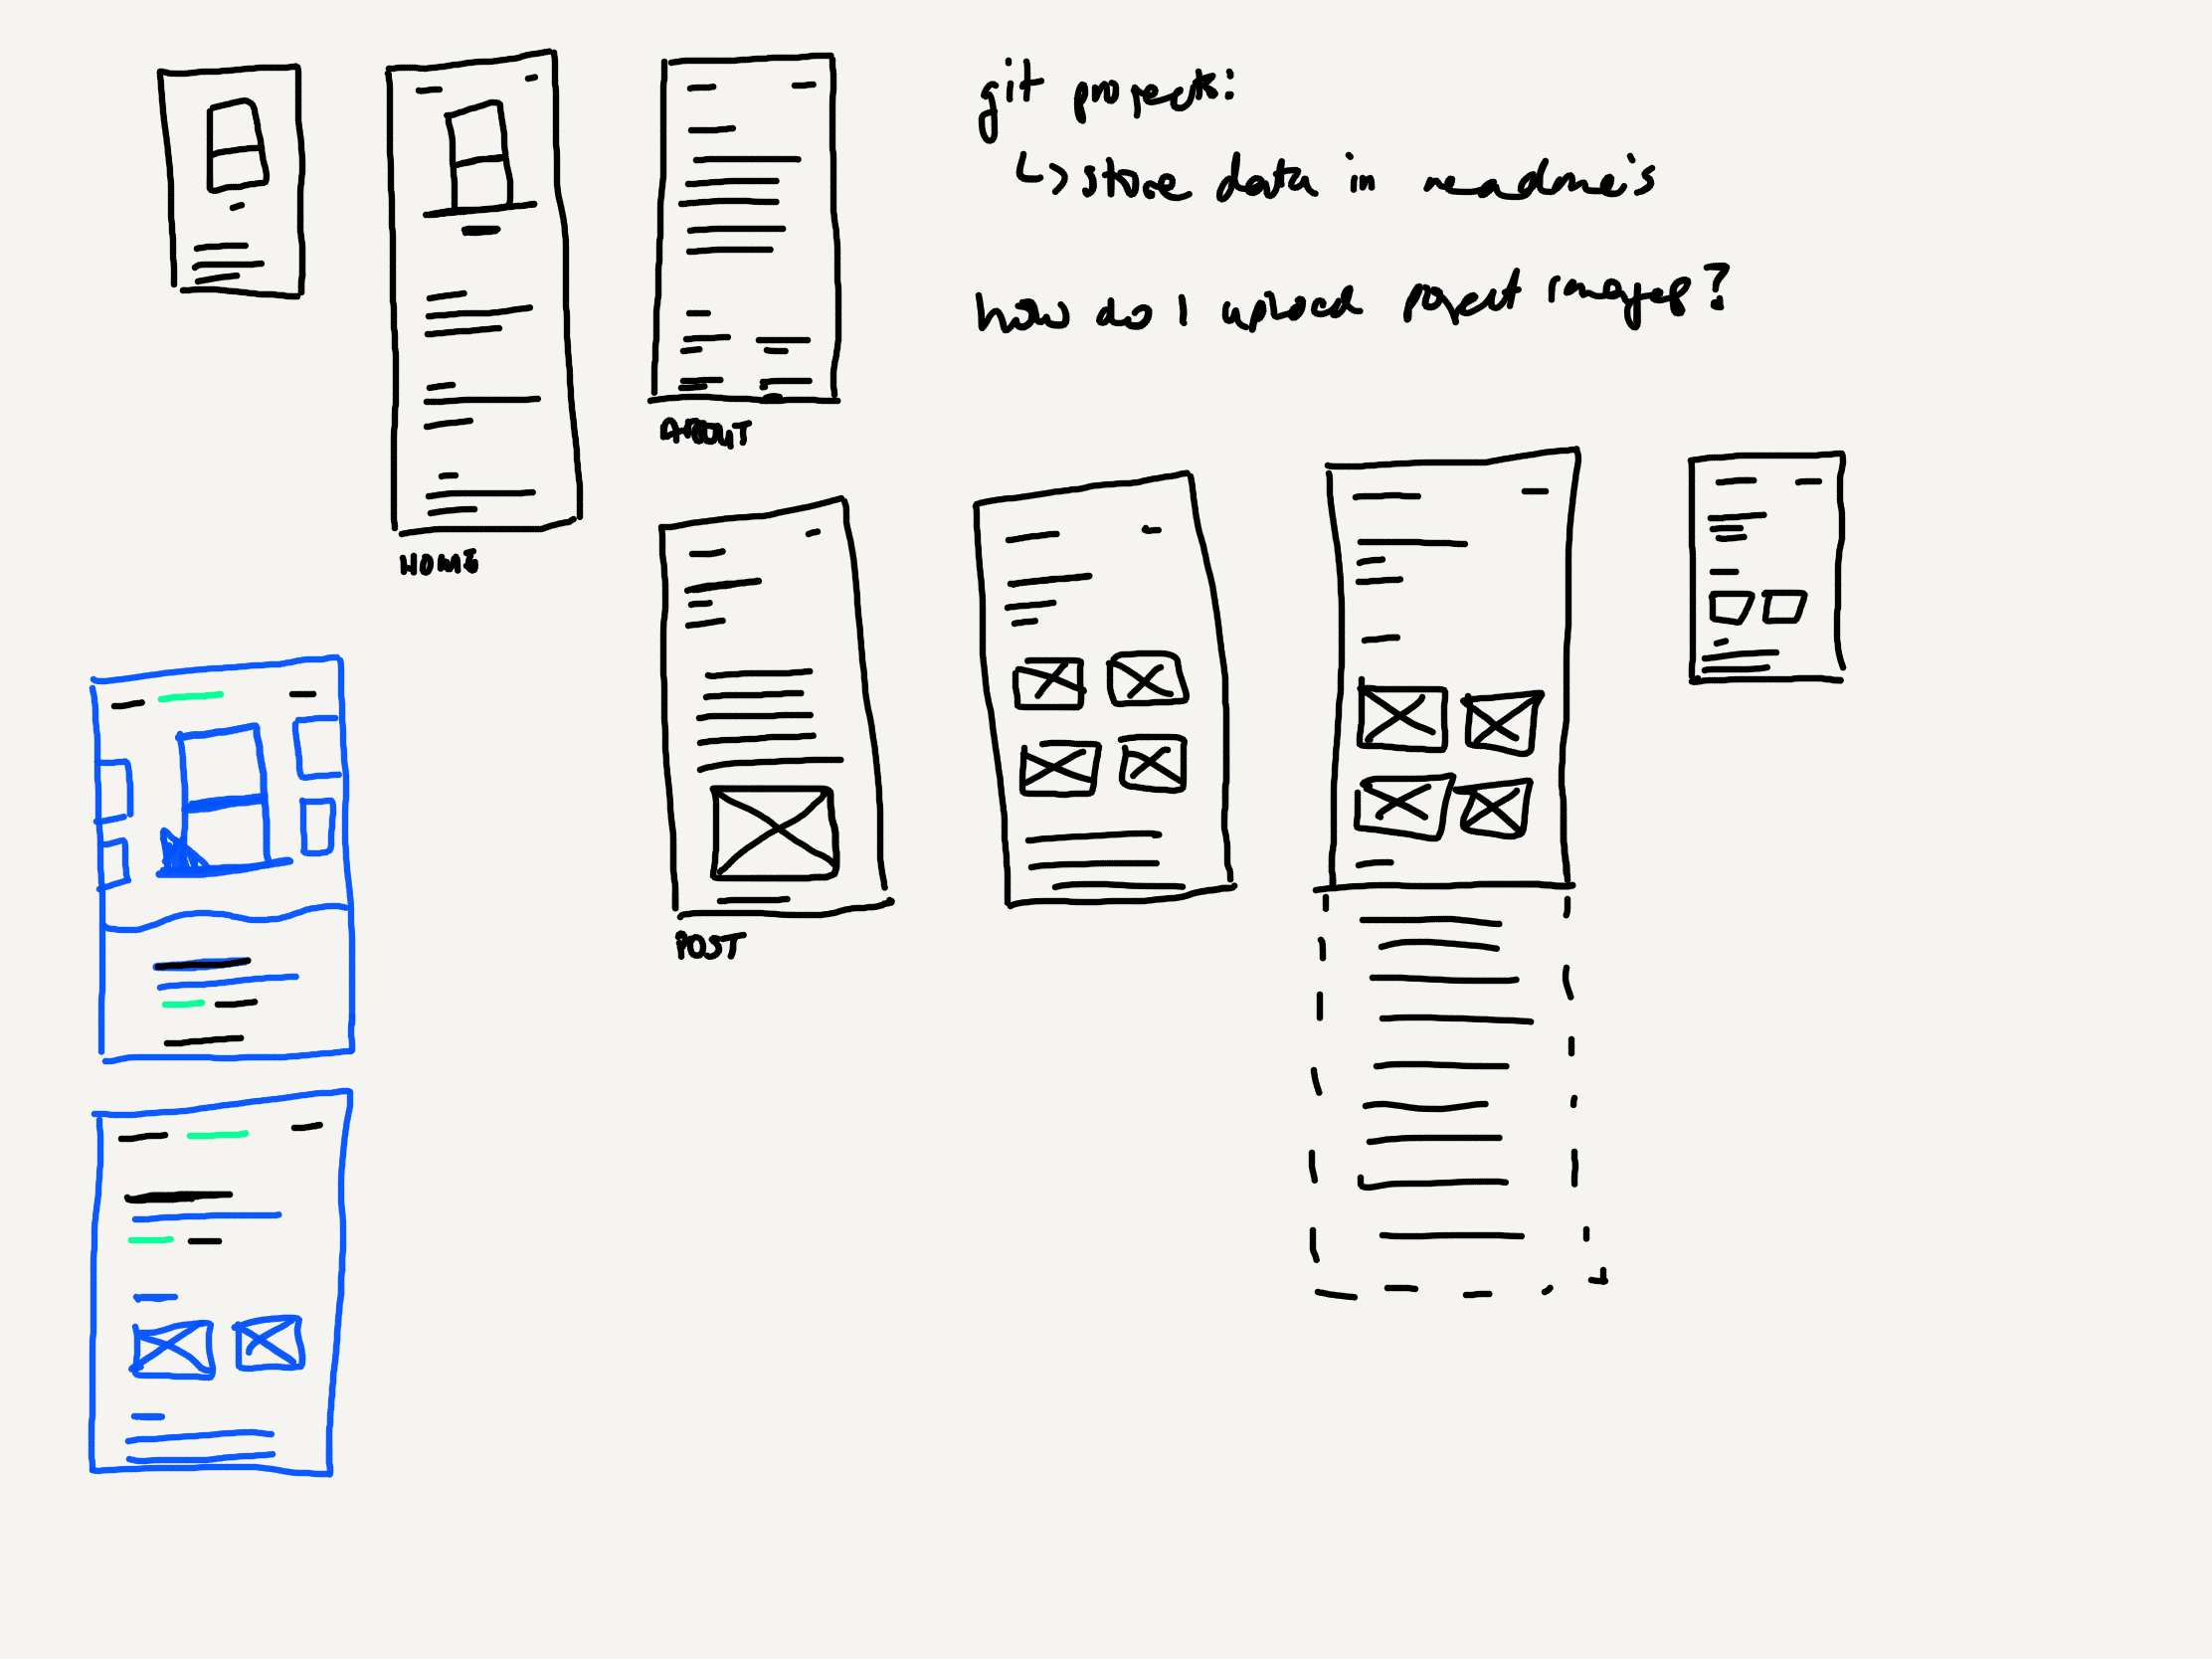 git projects:
↳ store data in readme's
how do I upload project images?
ABOUT
HOME
POST